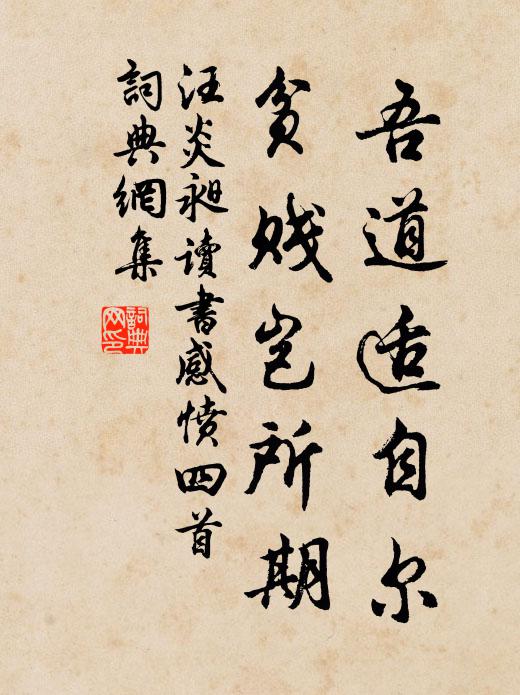 吾道适自尔
贫贱岂所期
汪炎昶讀書感憤四首
詞典網集
詞典網印